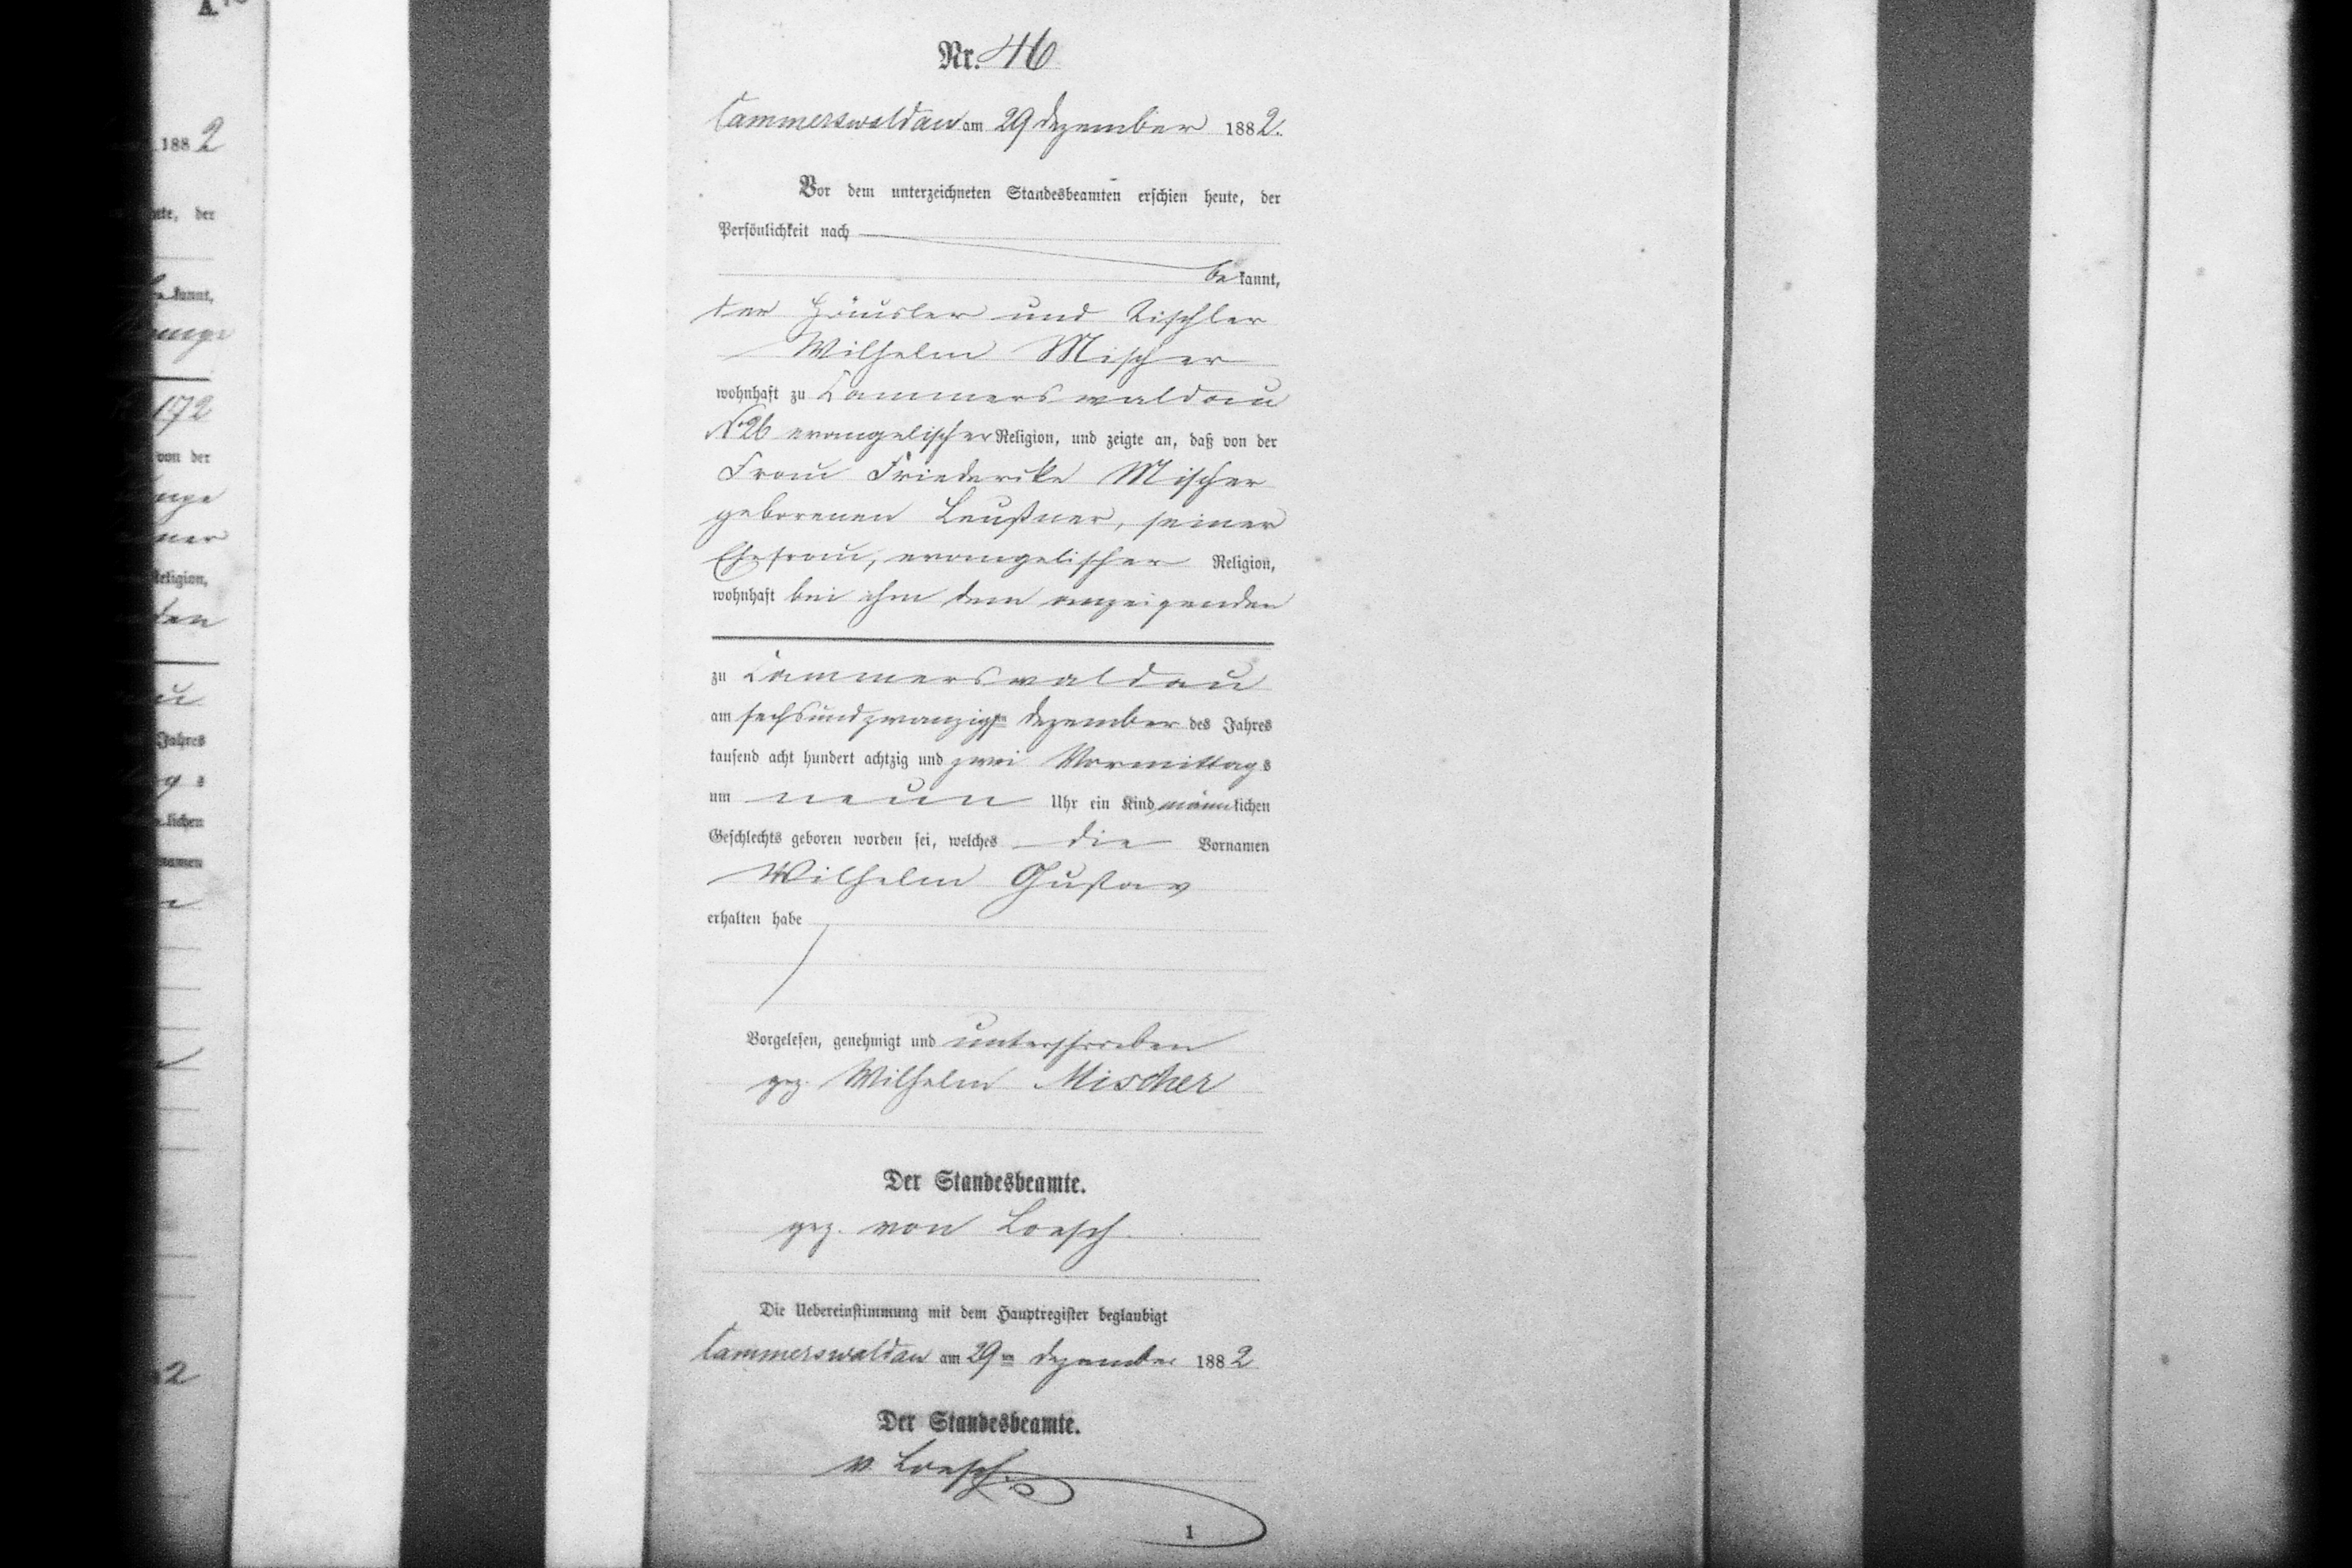 Nr. 46
Cammerswaldau am 29 Dezember 1882.
Vor dem unterzeichneten Standesbeamten erschien heute, der
Persönlichkeit nach
bekannt,
der Häusler und Tischler
Wilhelm Mischer
wohnhaft zu Cammerswaldau
No 26 evangelischer Religion, und zeigte an, daß von der
Frau Friederike Mischer
geborenen Leußner, seiner
Ehefrau, evangelischer Religion,
wohnhaft bei ihm dem anzeigenden
zu Cammerswaldau
am sechsundzwanzigsten Dezember des Jahres
tausend acht hundert achtzig und zwei Vormittags
um neun Uhr ein Kind männlichen
Geschlechts geboren worden sei, welches die Vornamen
Wilhelm Gustav
erhalten habe
Vorgelesen, genehmigt und unterschrieben
gez. Wilhelm Mischer
Der Standesbeamte.
gez. von Loesch.
Die Uebereinstimmung mit dem Hauptregister beglaubigt
Cammerswaldau am 29ten Dezember 1882
Der Standesbeamte.
v. Loesch.
1
188 2
der
kannt,
172
von der
Religion,
den
Jahres
lichen
2